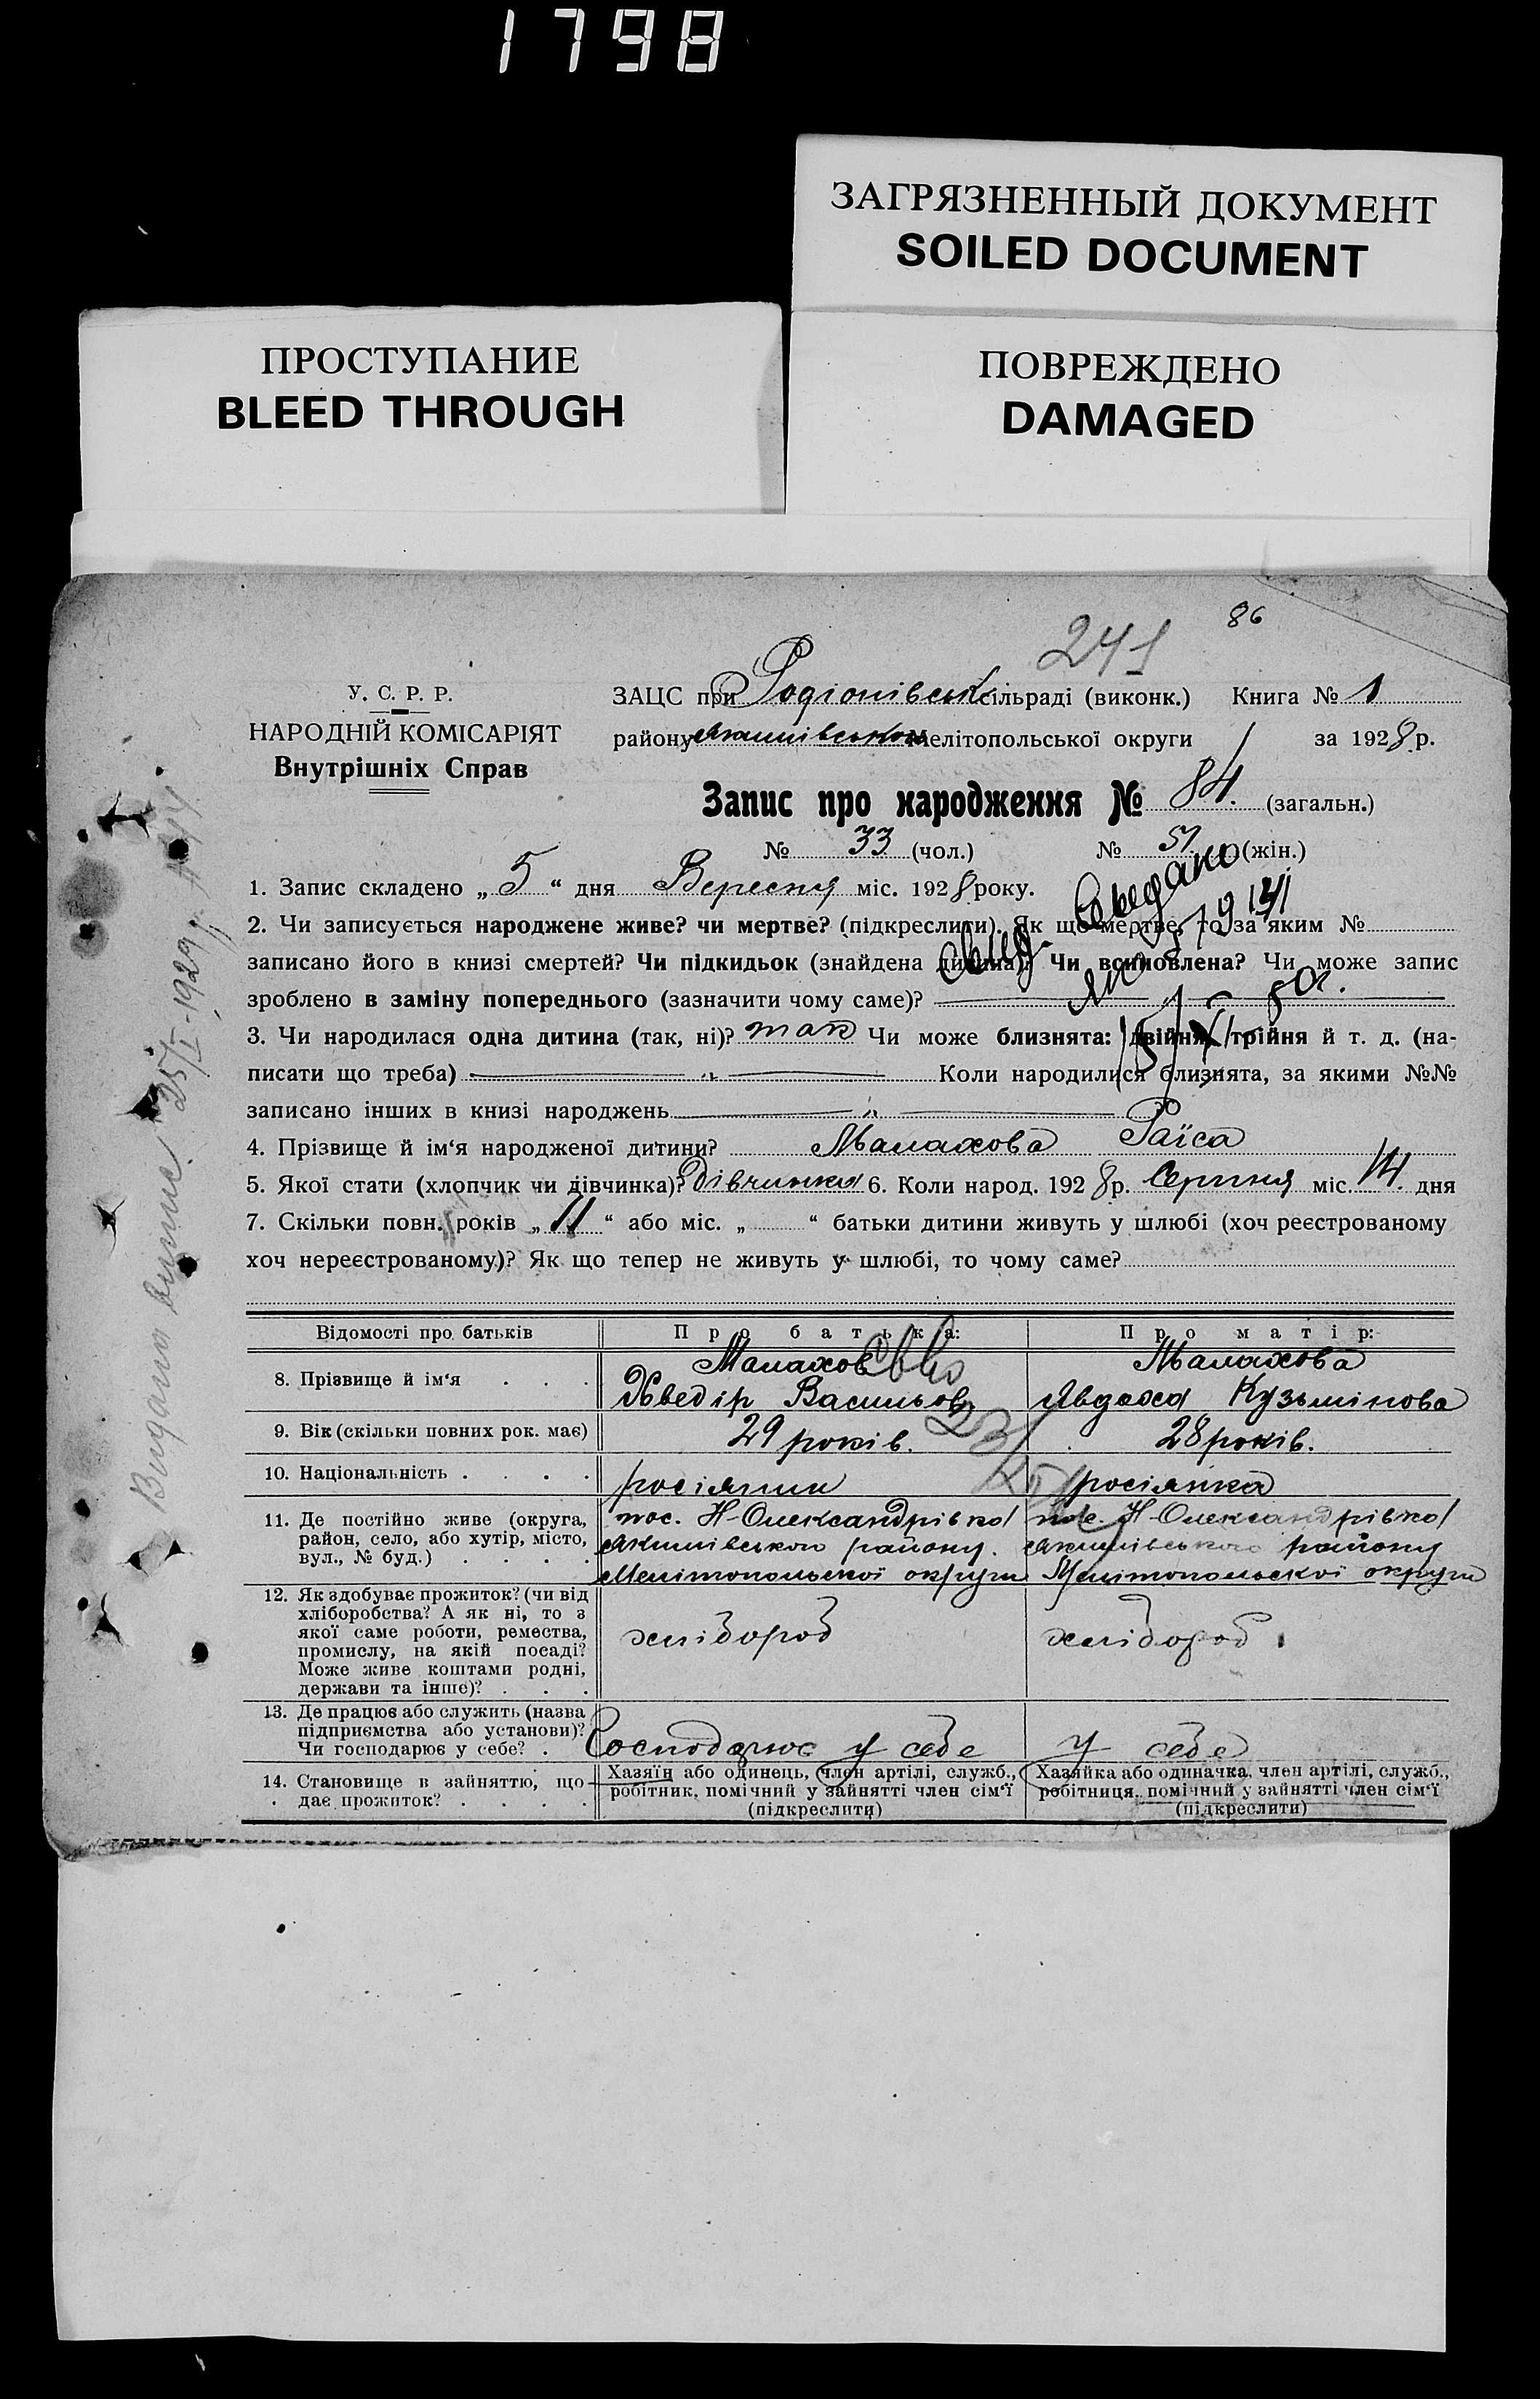 1798
ЗАГРЯЗНЕННЫЙ ДОКУМЕНТ
SOILED DOCUMENT
ПРОСТУПАНИЕ
BLEED THROUGH
ПОВРЕЖДЕНО
DAMAGED
86
241
У. С. Р. Р.
НАРОДНІЙ КОМІСАРІЯТ
Внутрішніх Справ
ЗАЦС при Родіонівськ сільраді (виконк.) Книга № 1
району Якимівського Мелітопольської округи за 1928 р.
Запис про народження № 84. (загальн.)
№ 33 (чол.) № 51 (жін.)
1. Запис складено „ 5 “ дня Вересня міс. 1928 року.
2. Чи записується народжене живе? чи мертве? (підкреслити). Як що мертве, то за яким №
записано його в книзі смертей? Чи підкидьок (знайдена дитина)? Чи всиновлена? Чи може запис
зроблено в заміну попереднього (зазначити чому саме)?
3. Чи народилася одна дитина (так, ні)? так Чи може близнята: двійня, трійня й т. д. (на-
писати що треба) „ Коли народилися близнята, за якими №№
записано інших в книзі народжень „
4. Прізвище й ім‘я народженої дитини? Малахова Раїса
5. Якої стати (хлопчик чи дівчинка)? Дівчинка 6. Коли народ. 1928 р. Серпня міс. 14. дня
7. Скільки повн. років „ 11 “ або міс. „ “ батьки дитини живуть у шлюбі (хоч реєстрованому
хоч нереєстрованому)? Як що тепер не живуть у шлюбі, то чому саме?
Видано випис 25/I-1929
Відомості про батьків
Про батька:
Про матір:
8. Прізвище й ім‘я . . .
Малахов
Хведір Васильов
Малахова
Явдоха Кузьмінова
9. Вік (скільки повних рок. має)
29 років.
28 років.
10. Національність . . . .
росіянин
росіянка
11. Де постійно живе (округа,
район, село, або хутір, місто,
вул., № буд.) . . . .
пос. Н-Олександрівка
Якимівського району.
Мелітопольскої округи
пос. Н-Олександрівка
Якимівського району
Мелітопольскої округи
12. Як здобуває прожиток? (чи від
хліборобства? А як ні, то з
якої саме роботи, ремества,
промислу, на якій посаді?
Може живе коштами родні,
держави та інше)? . . .
хлібороб
хлібороб
13. Де працює або служить (назва
підприємства або установи)?
Чи господарює у себе? .
Господарює у себе
у себе
14. Становище в зайняттю, що
дає прожиток? . . . .
Хазяїн або одинець, член артілі, служб.,
робітник, помічний у зайнятті член сім‘ї
(підкреслити)
Хазяйка або одиначка, член артілі, служб.,
робітниця, помічний у зайнятті член сім‘ї
(підкреслити)